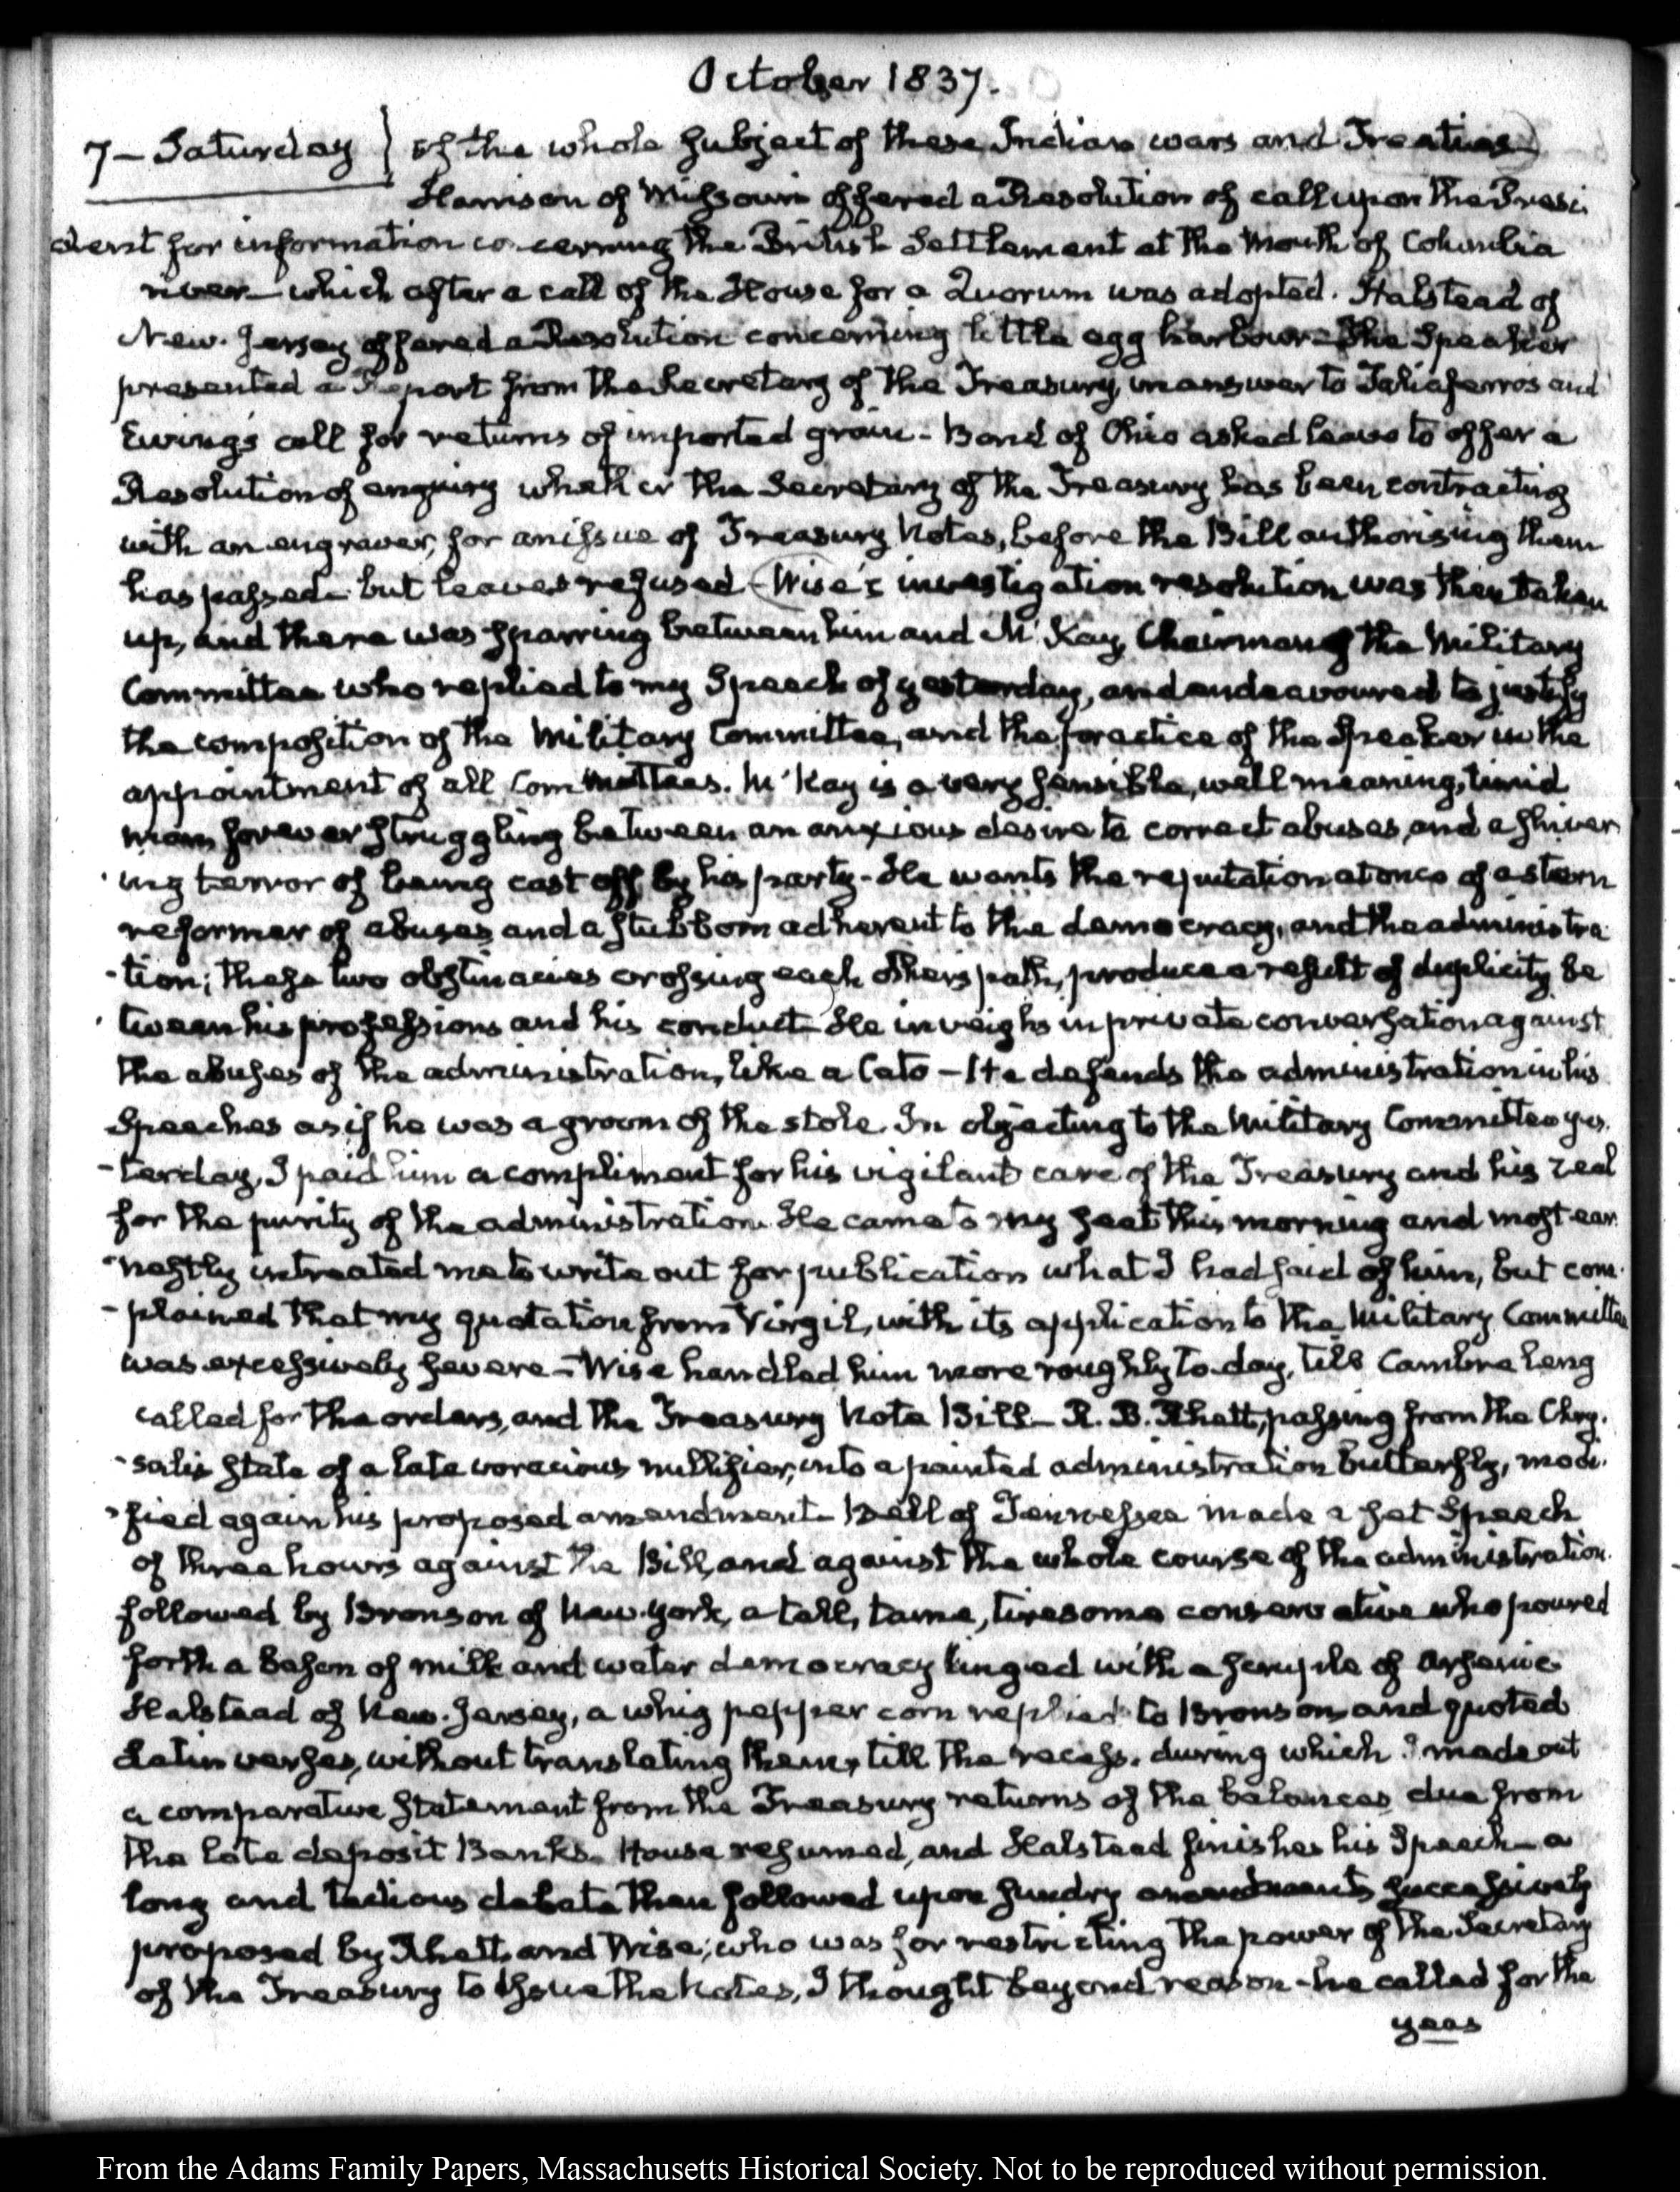 October 1837.
7 – Saturday } of the whole subject of these Indian wars and Treaties)
Harrison of Missouri offered a Resolution of call upon the Presi
dent for information concerning the British Settlement at the Mouth of Columbia
river – which after a call of the House for a Quorum was adopted. Halstead of
New-Jersey offered a Resolution concerning little egg harbour – The Speaker
presented a Report from the Secretary of the Treasury, in answer to Taliaferro's and
Ewing's call for returns of imported grain – Bond of Ohio asked leave to offer a
Resolution of enquiry whether the Secretary of the Treasury has been contracting
with an engraver, for an issue of Treasury Notes, before the Bill authorising them
has passed – but leave was refused – (Wise's investigation resolution was then taken
up, and there was sparring between him and McKay, Chairman of the Military
Committee who replied to my Speech of yesterday, and endeavoured to justify
the composition of the Military Committee, and the practice of the Speaker in the
appointment of all Committees. McKay is a very sensible, well meaning, timid
man, forever struggling between an anxious desire to correct abuses, and a shiver
ing terror of being cast off by his party – He wants the reputation at once of a stern
reformer of abuses and a stubborn adherent to the democracy, and the administra
-tion; these two obstinacies crossing each others path, produce a result of duplicity be
tween his professions and his conduct – He inveighs in private conversation against
the abuses of the administration, like a Cato – He defends the administration in his
Speeches as if he was a groom of the stole. In objecting to the Military Committee yes.
-terday, I paid him a compliment for his vigilant care of the Treasury and his zeal
for the purity of the administration. He came to my seat this morning and most ear
-nestly intreated me to write out for publication what I had said of him, but com-
-plained that my quotation from Virgil, with its application to the Military Committee
was excessively severe – Wise handled him more roughly to-day, till Cambreleng
called for the orders, and the Treasury Note Bill – R. B. Rhett, passing from the Chry-
-salis state of a late voracious nullifier, into a painted administration butterfly, modi-
-fied again his proposed amendment – Bell of Tennessee made a set Speech
of three hours against the Bill, and against the whole course of the administration.
followed by Bronson of New-York, a tall, tame, tiresome conservative who poured
forth a bason of milk and water democracy tinged with a scruple of arsenic
Halstead of New-Jersey, a whig pepper corn replied to Bronson and quoted
Latin verses, without translating them, till the recess. during which I made out
a comparative statement from the Treasury returns of the balances due from
the late deposit Banks. House resumed, and Halstead finishes his Speech – a
long and tedious debate then followed upon sundry amendments successively
proposed by Rhett, and Wise; who was for restricting the power of the Secretary
of the Treasury to issue the Notes, I thought beyond reason – he called for the
yeas
From the Adams Family Papers, Massachusetts Historical Society. Not to be reproduced without permission.